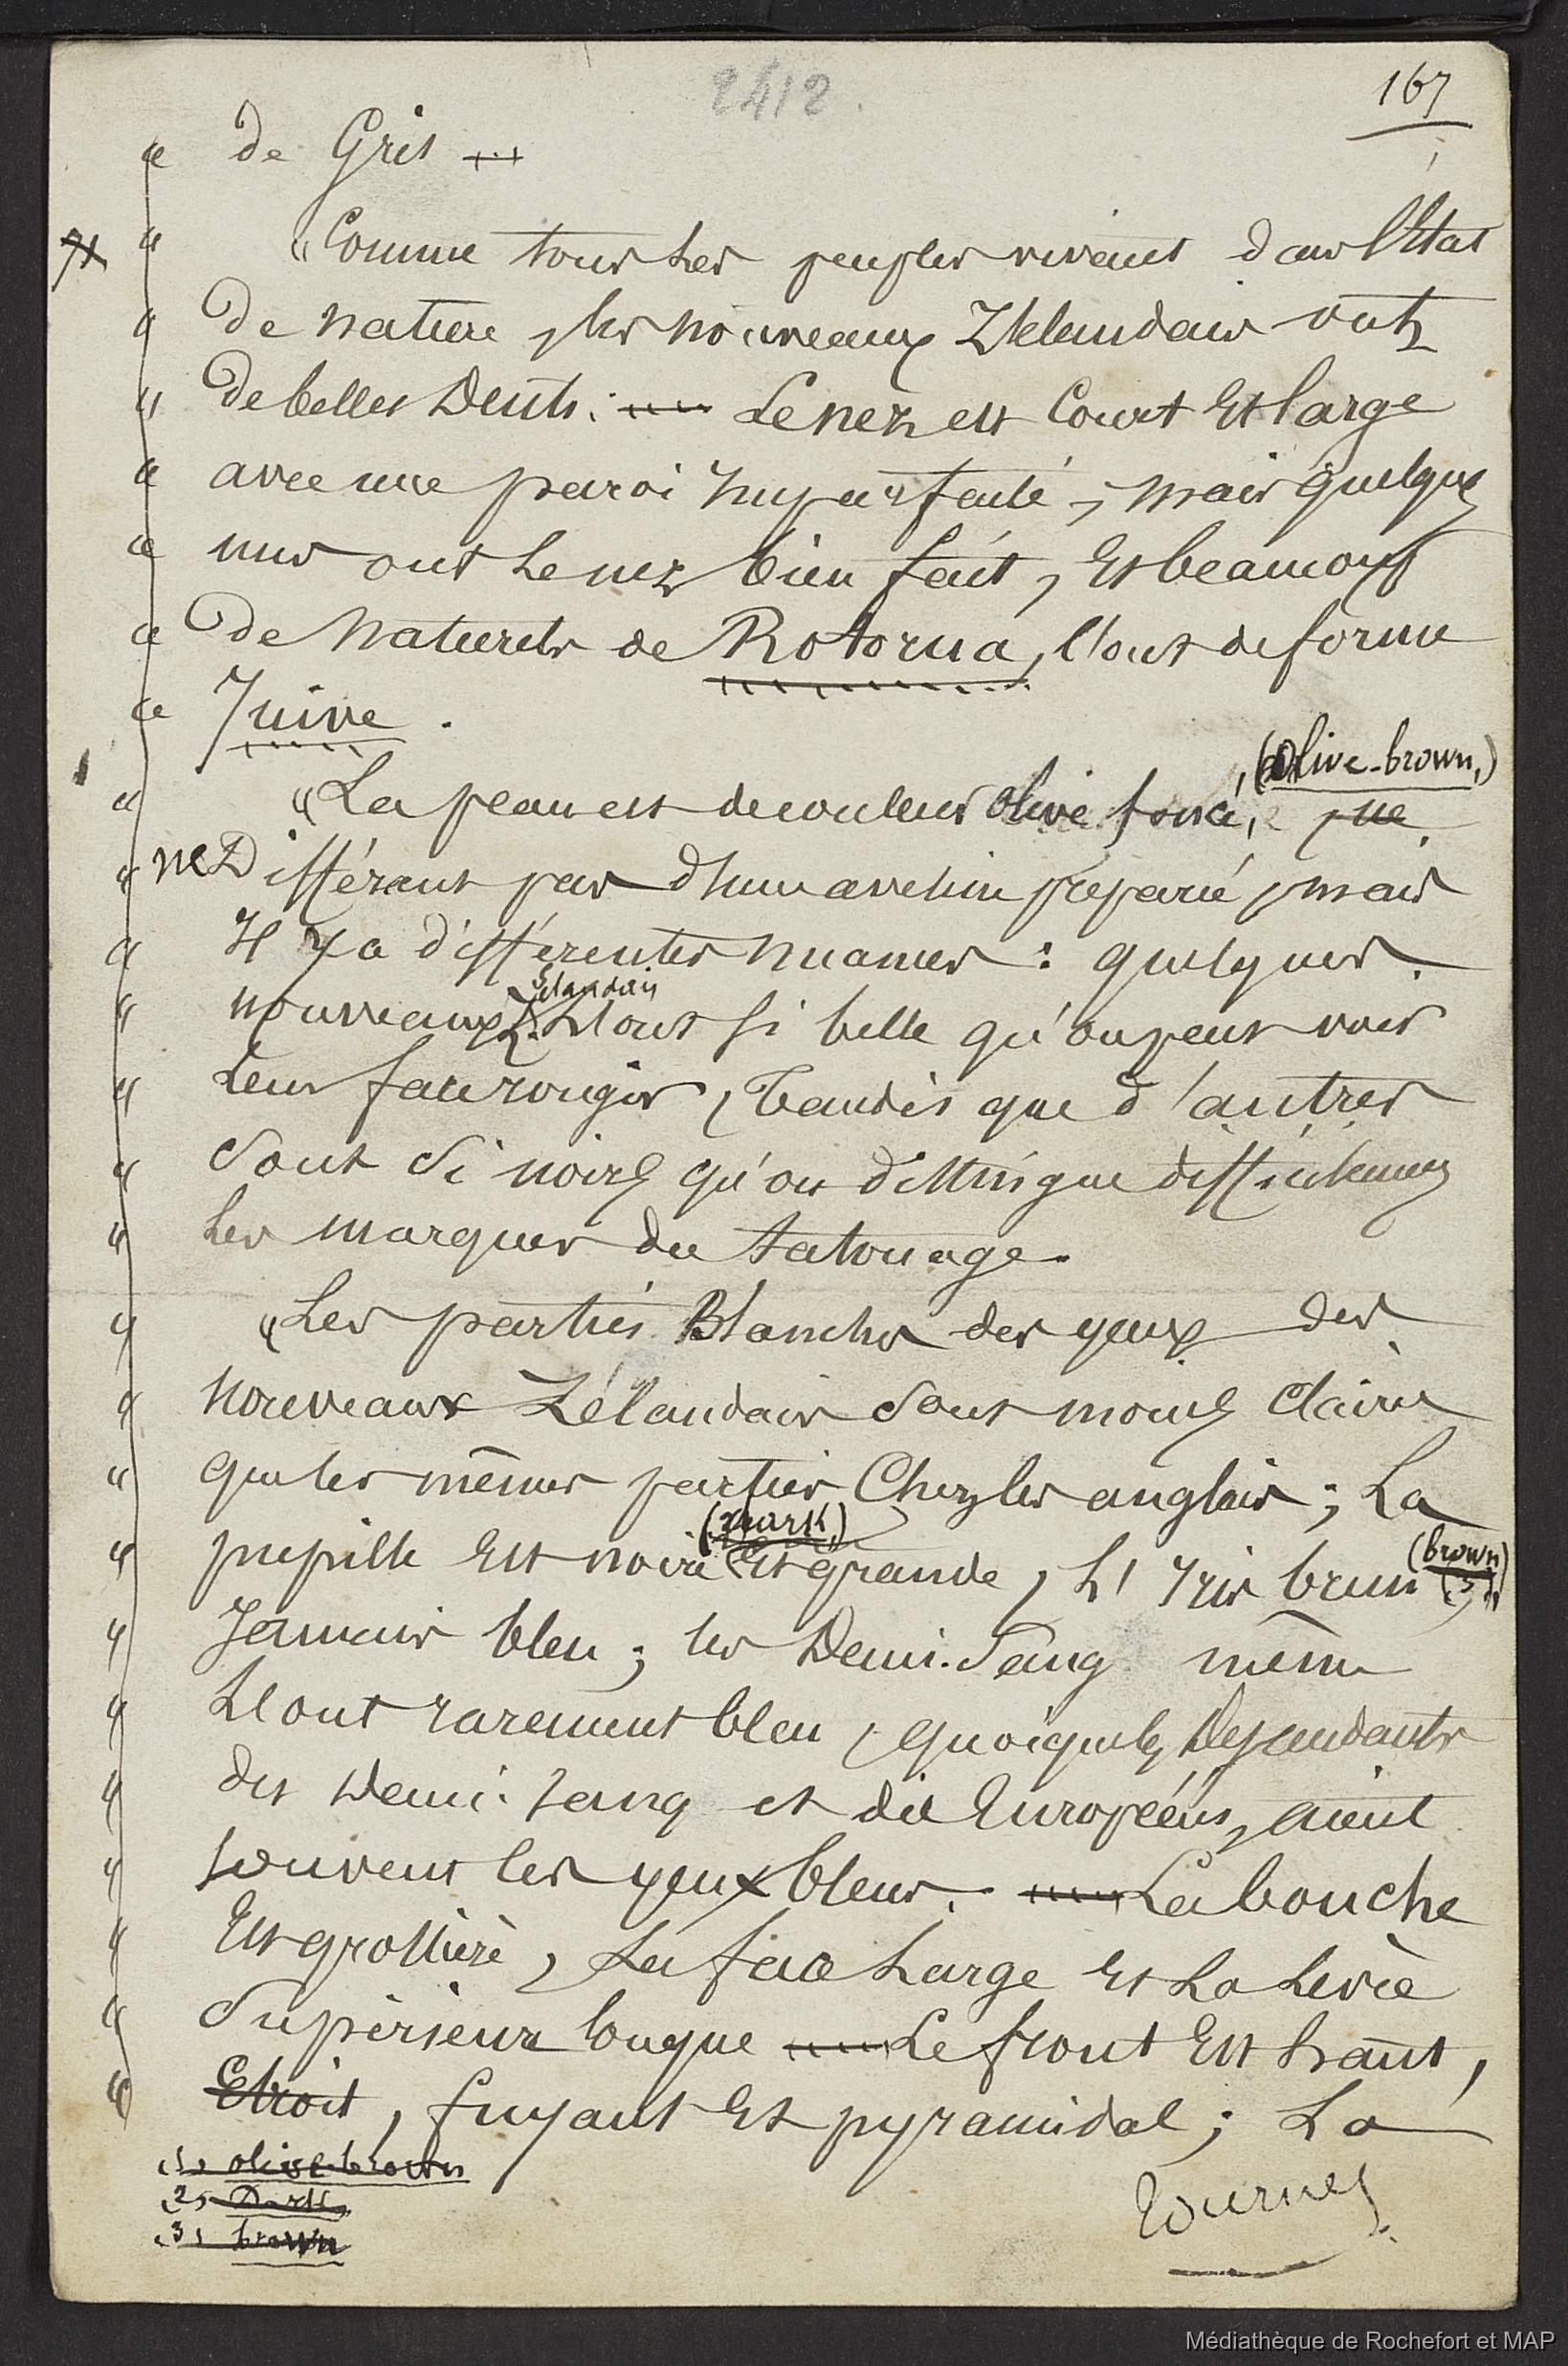 2412.
167
" de Gris ...
" "Comme tous les peuples vivant dans l'État
" de nature, les nouveaux Zélandais ont
" de belles Dents: .... Le nez est Court Et large
" avec une paroi Imparfaite, mais quelques
" uns ont le nez bien fait, Et beaucoup
" de Naturels de Rotorua, l'ont de forme
" Juive.
(olive-brown,)
" "La peau est de couleur olive foncé, , ne
" ne Différant pas d'un , mais
" Il y a différentes nuances : quelques
Zélandais
" nouveaux Z. l'ont si belle qu'on peut voir
" Leur face rougir, Tandis que d'autres
" Sont si noirs qu'on distingue difficilement
" Les marques du tatouage.
" "Les parties Blanches des yeux des
" nouveaux Zélandais sont moins claires
" que les mêmes parties Chez les anglais ; La
(Dark,) (brown)
" pupille Est noire Et grande, L'Iris brun (3),
" Jamais bleu ; les Demi-Sang même
" L'ont rarement bleu, quoique les Descendants
" des Demi-sang et des Européens, aient
" souvent les yeux bleus. .... La bouche
" Est grossière, La face Large Et La Levre
" Supérieure longue .... Le front Est haut,
" Etroit, fuyant Et pyramidal ; La
(1) olive-brown
(2) Dark,
(3) brown
Tournez.
Médiathèque de Rochefort et MAP